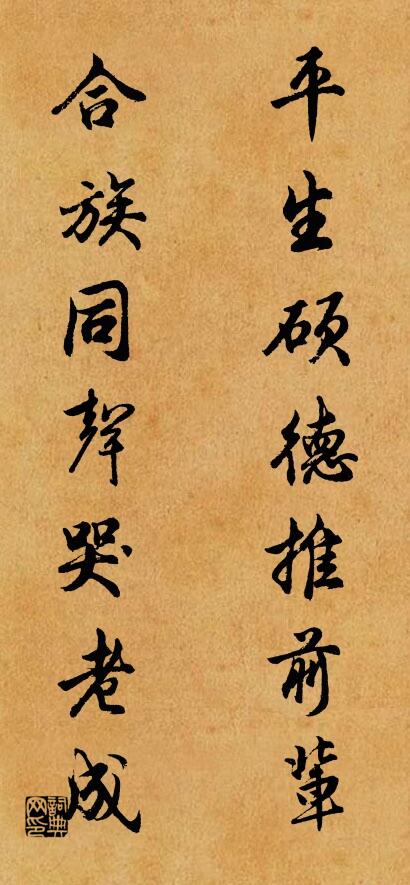 平生硕德推前辈
合族同聲哭老成
詞典网印